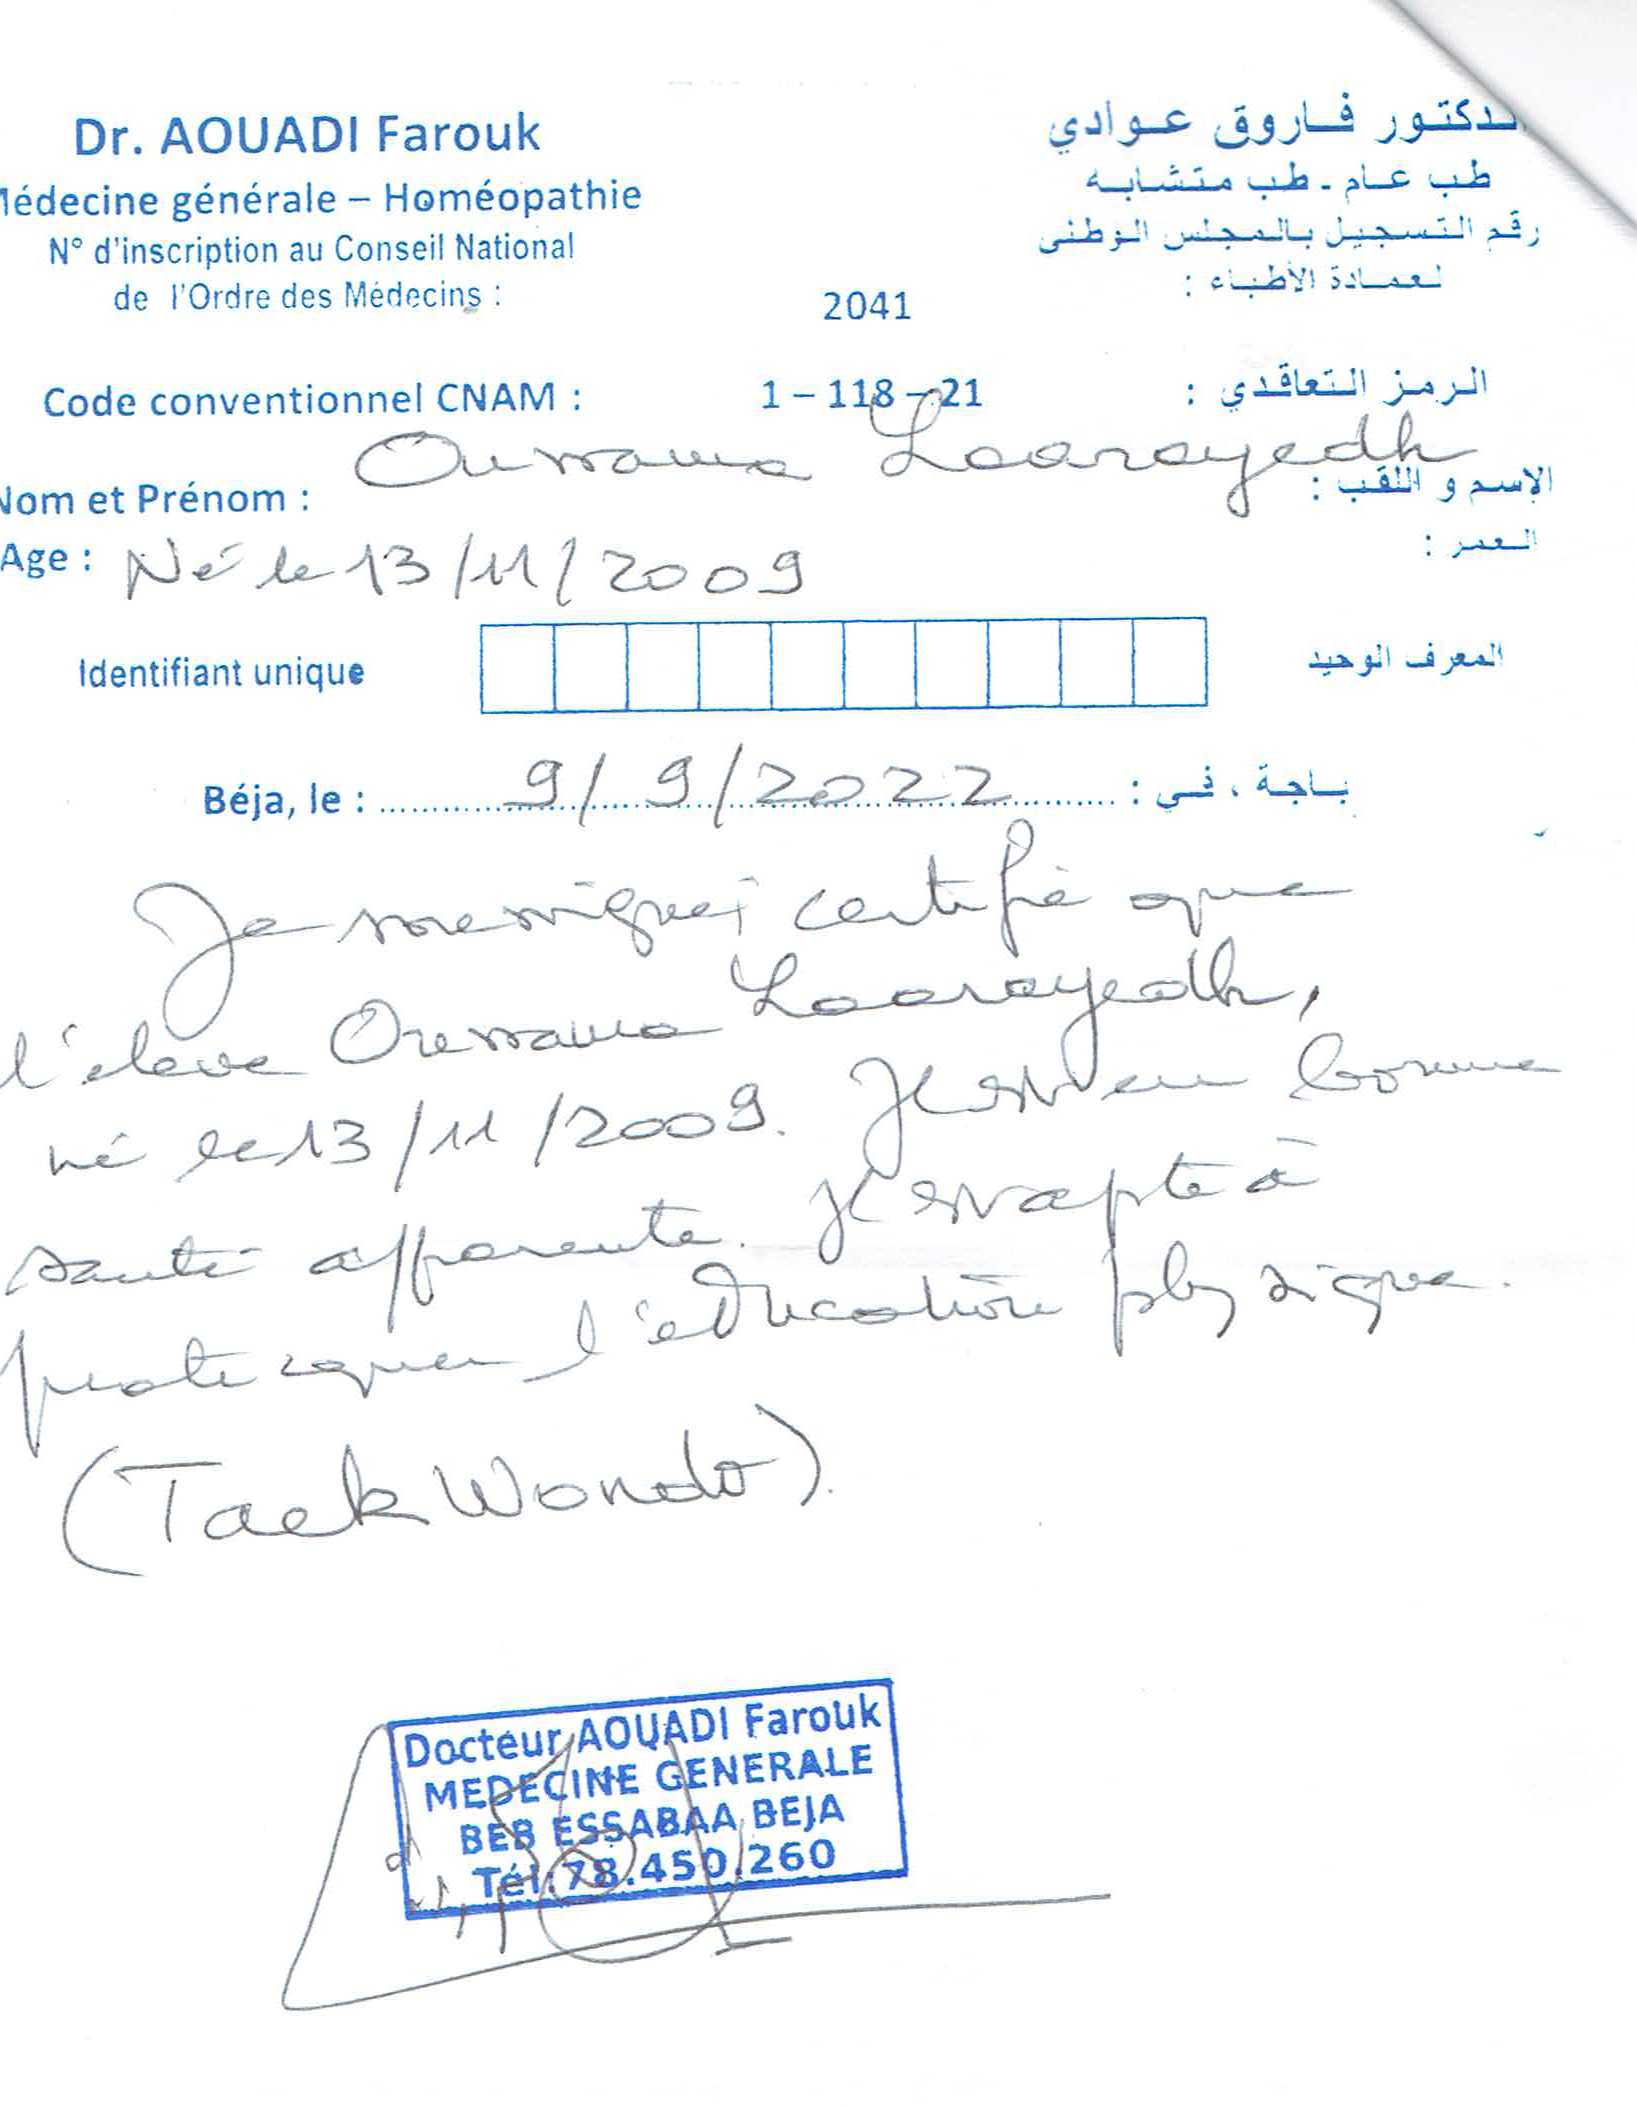 Dr. AOUADI Farouk
الدكتور فاروق عوادي
Médecine générale – Homéopathie
طب عام - طب متشابه
N° d'inscription au Conseil National
رقم التسجيل بالمجلس الوطني
de l'Ordre des Médecins :
2041
لعمادة الأطباء :
Code conventionnel CNAM :
1 – 118 – 21
الرمز التعاقدي :
Nom et Prénom : Oussama Laarayedh
الإسم و اللقب :
Age : Né le 13/11/2009
العمر :
Identifiant unique
المعرف الوحيد
Béja, le : 9/9/2022
باجة ، في :
Je soussigné certifie que
l'élève Oussama Laarayedh,
né le 13/11/2009. Il est en bonne
santé apparente. Il est apte à
pratiquer l'éducation physique.
(Taek Wondo).
Docteur AOUADI Farouk
MEDECINE GENERALE
BEB ESSABAA BEJA
Tél:78.450.260